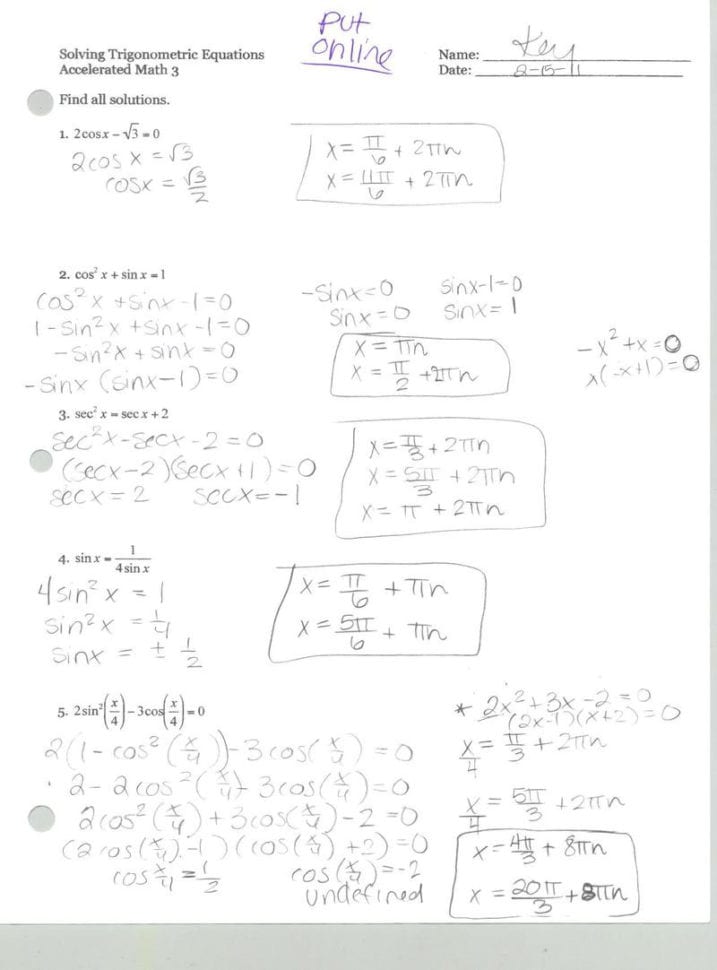 Put
online
Solving Trigonometric Equations
Accelerated Math 3
Name: Key
Date: 2-15-11
Find all solutions.
1. 2cosx − √3 = 0
2cos x = √3
cosx = √3/2
x = π/6 + 2πn
x = 11π/6 + 2πn
2. cos² x + sin x = 1
cos²x + sinx - 1 = 0
1 - sin²x + sinx - 1 = 0
- sin²x + sinx = 0
- sinx (sinx - 1) = 0
-sinx = 0
sinx = 0
sinx-1=0
sinx = 1
x = πn
x = π/2 + 2πn
-x² + x = 0
x(-x+1) = 0
3. sec² x = sec x + 2
sec²x - secx - 2 = 0
(secx - 2)(secx + 1) = 0
secx = 2 secx = -1
x = π/3 + 2πn
x = 5π/3 + 2πn
x = π + 2πn
4. sin x = 1/(4 sin x)
4sin²x = 1
sin²x = 1/4
sinx = ± 1/2
x = π/6 + πn
x = 5π/6 + πn
5. 2sin²(x/4) − 3cos(x/4) = 0
2(1 - cos²(x/4)) - 3cos(x/4) = 0
2 - 2cos²(x/4) - 3cos(x/4) = 0
2cos²(x/4) + 3cos(x/4) - 2 = 0
(2cos(x/4) - 1)(cos(x/4) + 2) = 0
cos x/4 = 1/2
cos(x/4) = -2
undefined
* 2x² + 3x - 2 = 0
(2x-1)(x+2) = 0
x/4 = π/3 + 2πn
x/4 = 5π/3 + 2πn
x = 4π/3 + 8πn
x = 20π/3 + 8πn